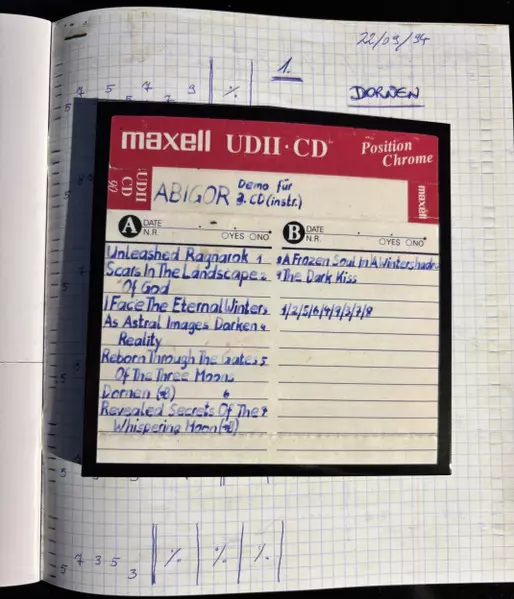 22/09/94
7 5 7 3
5 7
%
1.
DORNEN
maxell UDII·CD Position
Chrome
UDII
CD
90
ABIGOR Demo für
2. CD (instr.)
maxell
A DATE
N.R. YES NO
B DATE
N.R. YES NO
Unleashed Ragnarok 1
Scars In The Landscape 2
Of God
I Face The Eternal Winter 3
As Astral Images Darken 4
Reality
Reborn Through The Gates 5
Of The Three Moons
Dornen 6
Revealed Secrets Of The
Whispering Moon
A Frozen Soul In A Wintershadow
The Dark Kiss
5 7 3 5 3
% % %